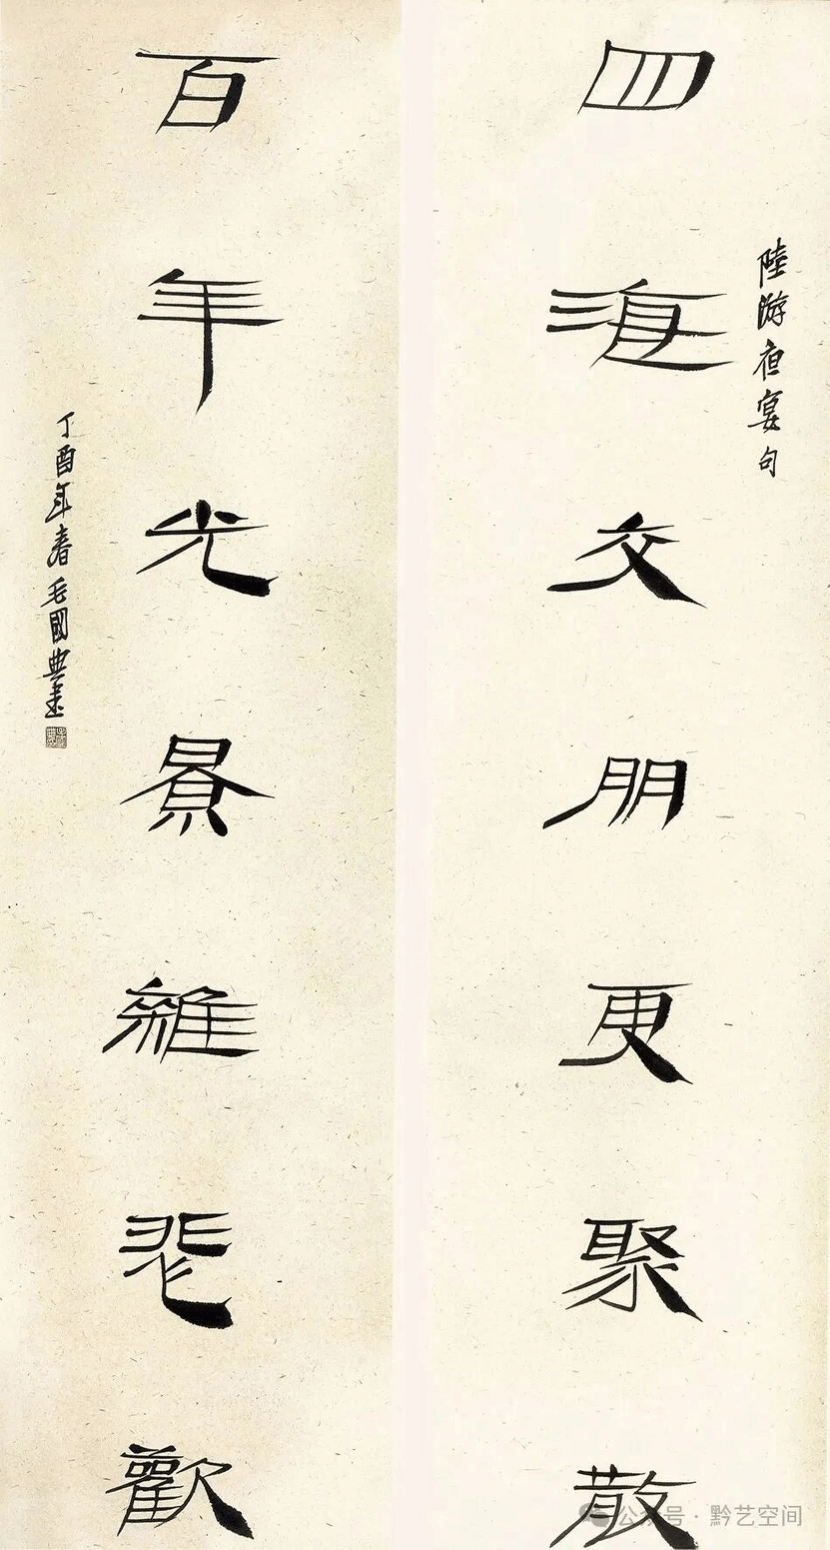 四海交朋更聚散
陸游夜宴句
百年光景雜悲歡
丁酉年春毛國典書
公众号·黔艺空间